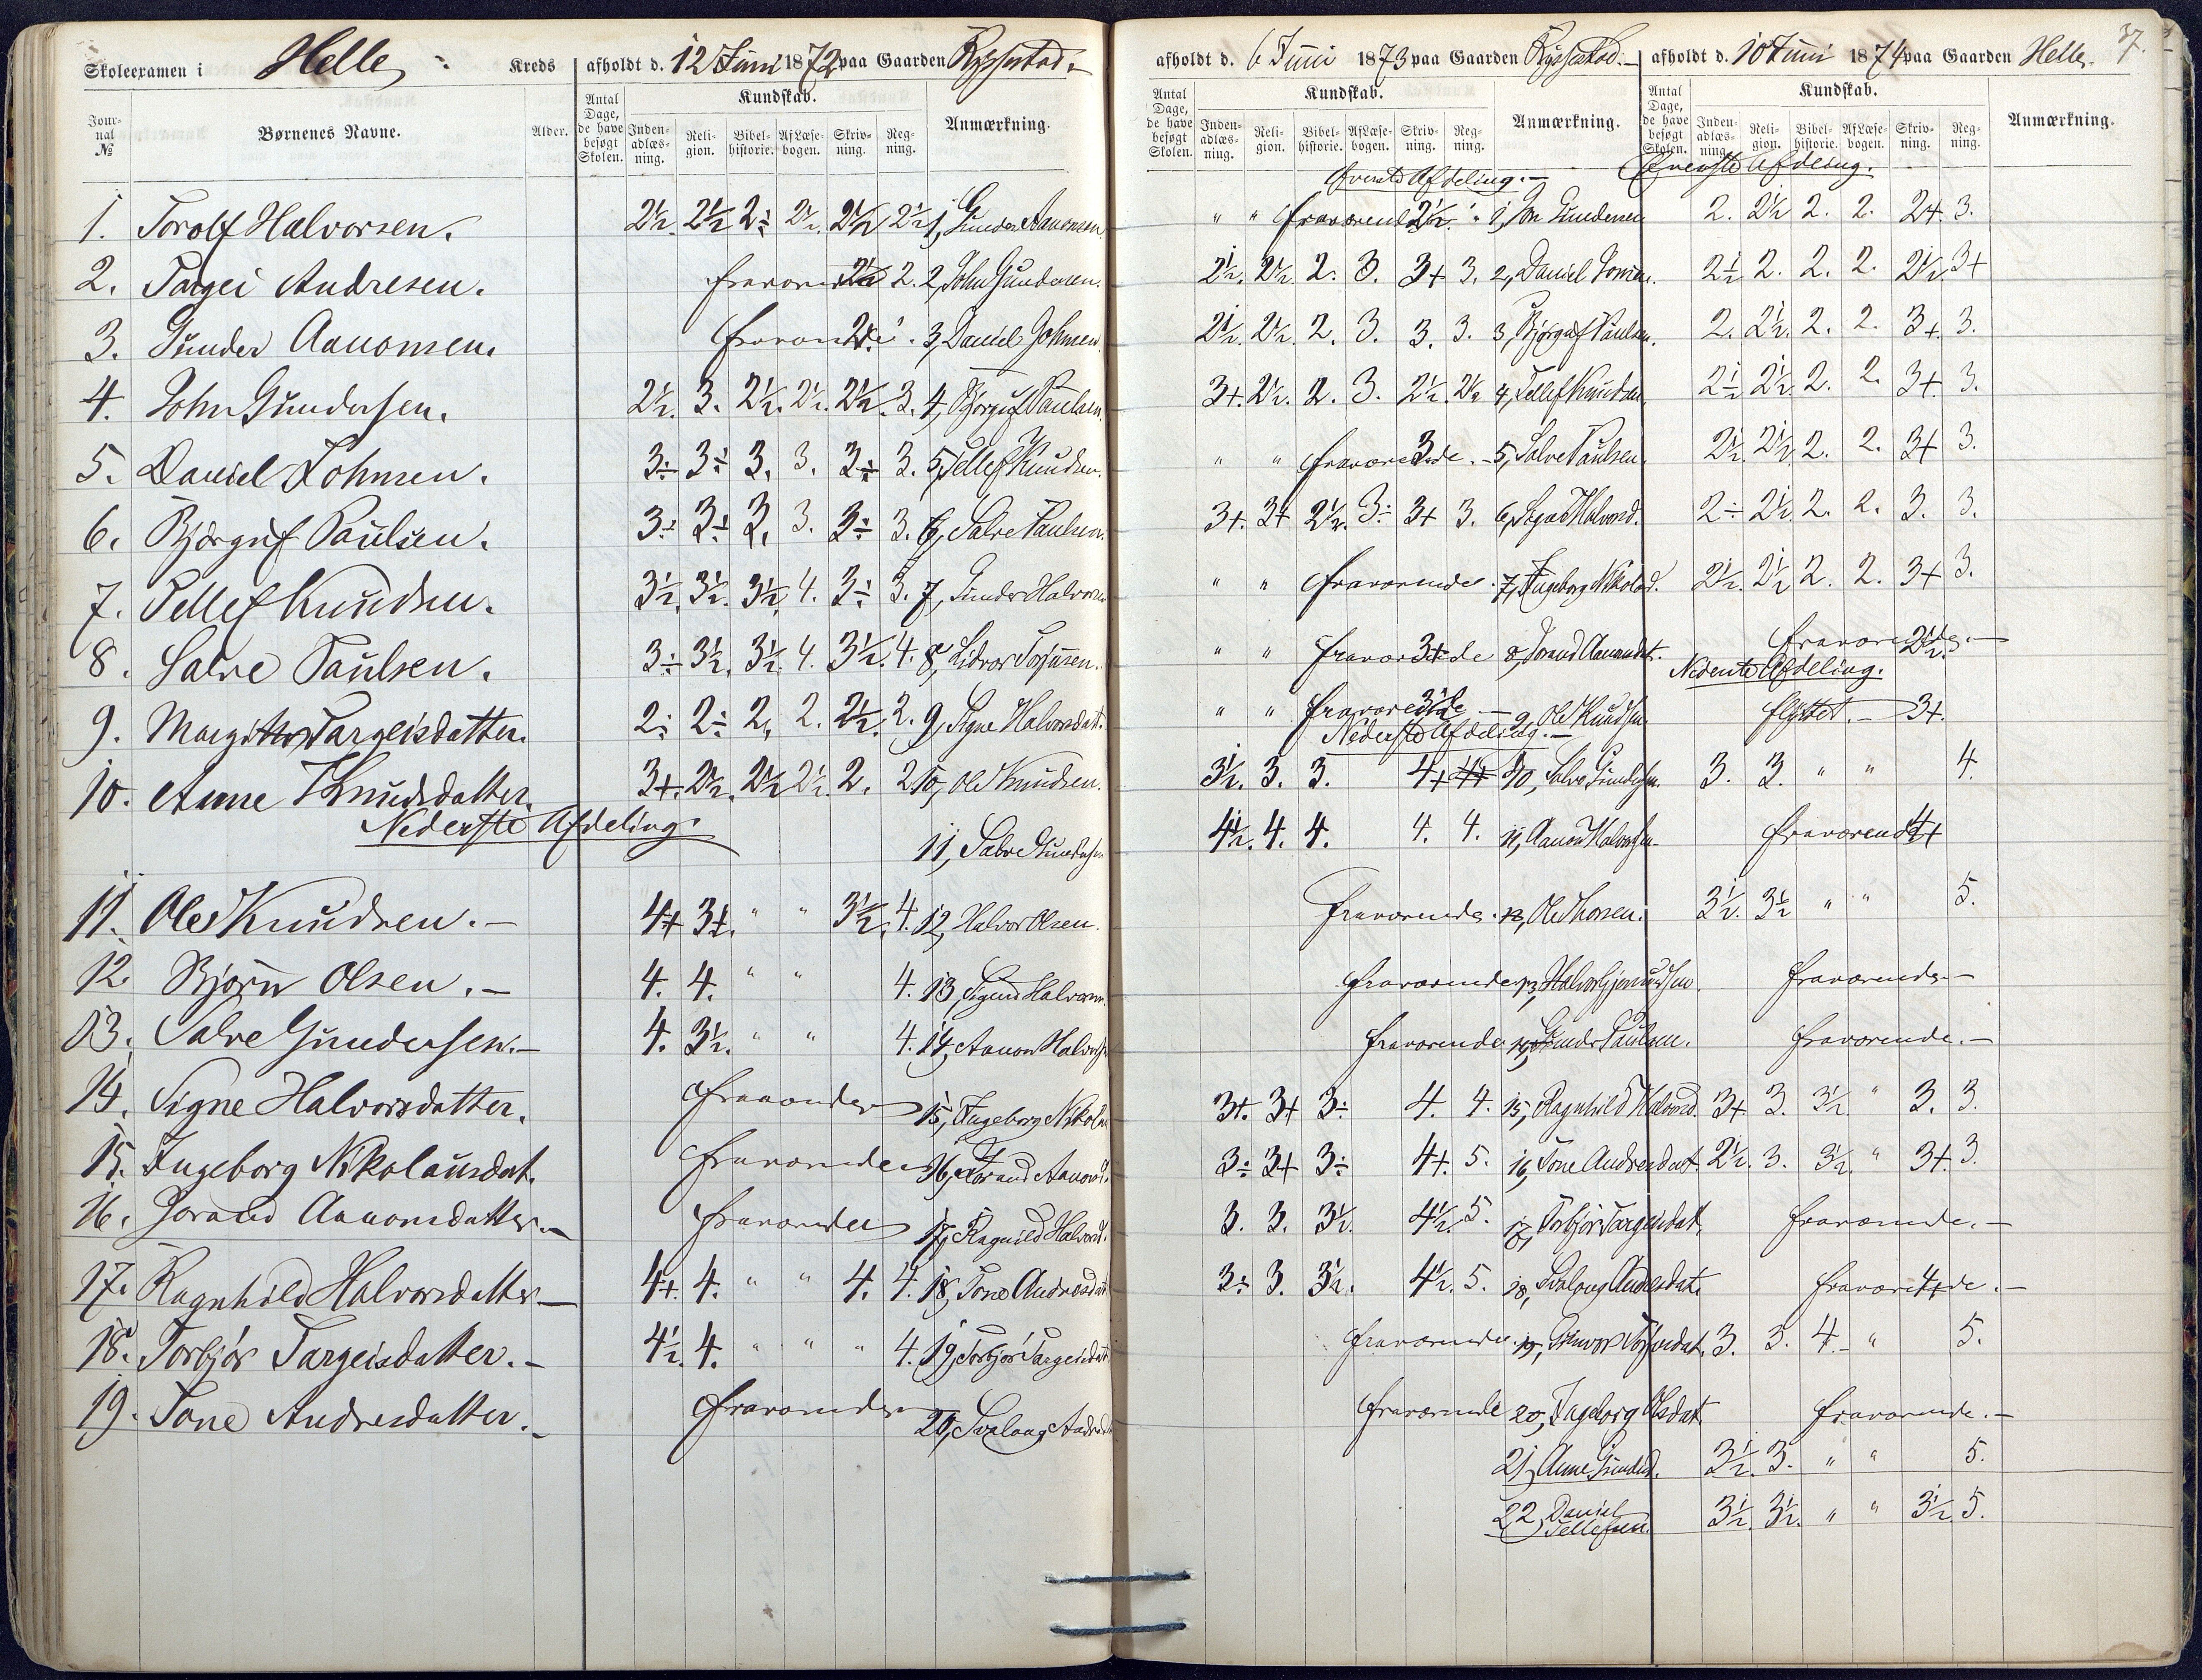 Skoleexamen i Helle Kreds afholdt d. 12 Juni 1872 paa Gaarden Ryssestad.
Jour-nal № Børnenes Navne. Alder. Antal Dage, de have besøgt Skolen. Kundskab. Anmærkning.
Inden-adlæs-ning. Reli-gion. Bibel-historie. Af Læse-bogen. Skriv-ning. Reg-ning.
1. Torolf Halvorsen. 2½. 2½ 2÷ 2½. 2½ 2½ 1, Gunder Aanonsen
2. Targei Andresen. fraværende 2½ 2. 2, John Gundersen.
3. Gunder Aanonsen. fraværende 3, Daniel Johnsen
4. John Gundersen. 2½. 3. 2½. 2½. 2½. 3. 4, Bjørguf Paulsen
5. Daniel Johnsen. 3÷ 3÷ 3. 3. 3÷ 3. 5, Tellef Knudsen.
6. Bjørguf Paulsen. 3÷ 3÷ 3. 3. 3÷ 3. 6, Salve Paulsen.
7. Tellef Knudsen. 3½. 3½. 3½. 4. 3÷ 3. 7, Gunder Halvorsen
8. Salve Paulsen. 3÷ 3½. 3½. 4. 3½. 4. 8,
9. Margit Targeisdatter. 2÷ 2÷ 2. 2. 2½. 2. 9, Signe Halvorsdat.
10. Anne Knudsdatter. 3+. 2½. 2½ 2½. 2. 2 10, Ole Knudsen.
Nederste Afdeling.
11, Salve Gundersen
11. Ole Knudsen.— 4+ 3+. " " 3½. 4. 12, Halvor Olsen.
12. Bjørn Olsen.— 4. 4. " " 4. 13, Sigurd Halvorsen
13. Salve Gundersen.— 4. 3½. " " 4. 14, Aanon Halvorsen
14. Signe Halvorsdatter. fraværende 15, Ingeborg Nikolas
15. Ingeborg Nikolausdat. fraværende 16, Jorand Aanonsd.
16. Jorand Aanonsdatter.— fraværende 17, Ragnild Halvorsd.
17. Ragnhild Halvorsdatter— 4+. 4. " " 4. 4. 18, Tone Andresdat
18. Torbjør Targeisdatter.— 4½. 4. " " " 4. 19, Torbjør Targeisdat
19. Tone Andresdatter.— fraværende 20, Svalaug Andresdat
afholdt d. 6 Juni 1873 paa Gaarden Ryssestad.—
Antal Dage, de have besøgt Skolen. Kundskab. Anmærkning.
Inden-adlæs-ning. Reli-gion. Bibel-historie. Af Læse-bogen. Skriv-ning. Reg-ning.
Øverste Afdeling.—
" " fraværende 2½. " 1, Jon Gundersen
2½. 2½. 2. 3. 3+ 3. 2, Daniel Jonsen.
2½. 2½. 2. 3. 3. 3. 3, Bjørguf Paulsen.
3+. 2½. 2. 3. 2½. 2½ 4, Tellef Knudsen.
" " fraværende. 3 5, Salve Paulsen.
3+. 3+ 2½. 3÷ 3+ 3. 6, Signe Halvorsd.
" " fraværende. 7, Ingeborg Nikolasd.
" " fraværende 3+ 8, Jorand Aanonsdat.
" " fraværende — 9, Ole Knudsen
Nederste Afdeling.—
3½. 3. 3. 4+ 4+ 10, Salve Gundersen.
4½. 4. 4. 4. 4. 11, Aanon Halvorsen
Fraværende. 12, Ole Thorsen.
fraværende 13,
fraværende 14, Gunder Paulsen.
3+. 3+ 3÷ 4. 4. 15, Ragnhild Halvorsd.
3÷ 3+ 3÷ 4+. 5. 16, Tone Andresdat.
3. 3. 3½. 4½. 5. 17, Torbjør Targeisdat.
3÷ 3. 3½. 4½. 5. 18, Svalaug Andresdat.
fraværende 19,
fraværende 20, Ingeborg Olsdat.
21, Anne Gundersd.
22, Daniel Tellefsen.
afholdt d. 10 Juni 1874 paa Gaarden Helle. 37.
Antal Dage, de have besøgt Skolen. Kundskab. Anmærkning.
Inden-adlæs-ning. Reli-gion. Bibel-historie. Af Læse-bogen. Skriv-ning. Reg-ning.
Øverste Afdeling.
2. 2½ 2. 2. 2+. 3.
2½ 2. 2. 2. 2½. 3+
2. 2½. 2. 2. 3+. 3.
2½ 2½. 2. 2. 3+. 3.
2½. 2½. 2. 2. 3+ 3.
2÷ 2½. 2. 2. 3. 3.
2½. 2½ 2. 2. 3+ 3.
fraværende 2½.—
Nederste Afdeling.
flyttet.— 3+.
3. 3. " " 4.
fraværende 4+
3½. 3½ " " 5.
fraværende—
fraværende.—
3+. 3. 3½ " 3. 3.
2½. 3. 3½. " 3+. 3.
fraværende.—
fraværende 4+.—
3. 3. 4.— " 5.
fraværende.—
3½. 3. " " 5.
3½. 3½. " " 3½. 5.